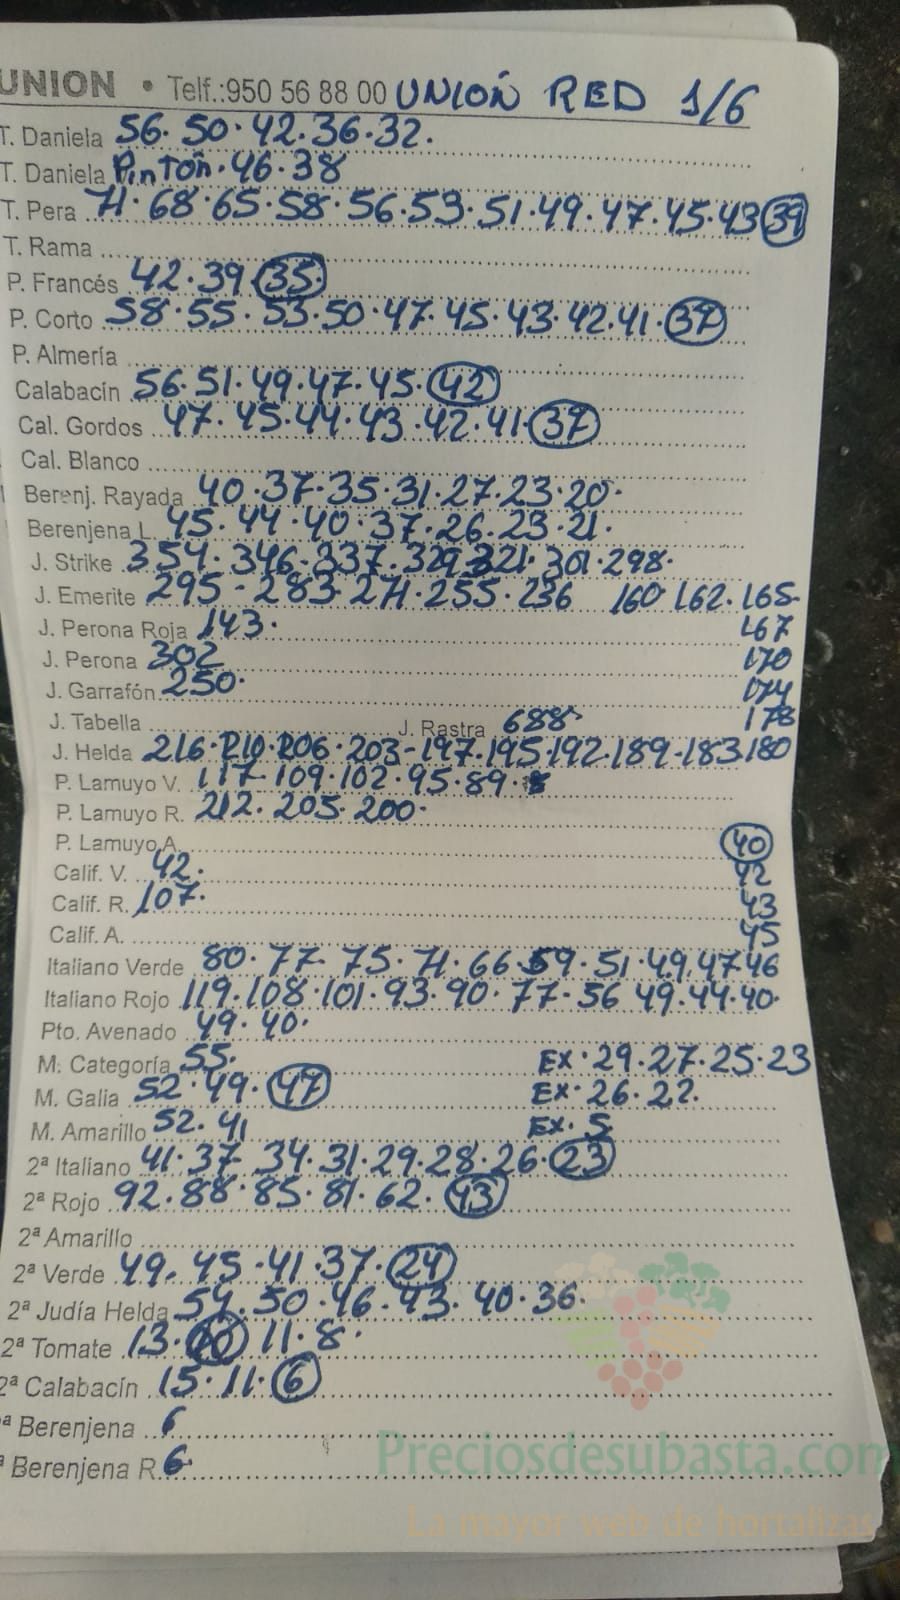 UNION • Telf.:950 56 88 00 UNIÓN RED 1/6
T. Daniela 56. 50. 42. 36. 32.
T. Daniela PINTÓN. 46. 38
T. Pera 71. 68. 65. 58. 56. 53. 51. 49. 47. 45. 43 39
T. Rama
P. Francés 42. 39 35
P. Corto 58. 55. 53. 50. 47. 45. 43. 42. 41. 37
P. Almería
Calabacín 56. 51. 49. 47. 45. 42
Cal. Gordos 47. 45. 44. 43. 42. 41. 37
Cal. Blanco
Berenj. Rayada 40. 37. 35. 31. 27. 23. 20.
Berenjena L. 45. 44. 40. 37. 26. 23. 21.
J. Strike 354. 346. 337. 329 321. 301. 298.
J. Emerite 295 - 283. 271. 255. 236 160 162. 165.
J. Perona Roja 143. 167
J. Perona 302 170
J. Garrafón 250. 174
J. Tabella J. Rastra 688 178
J. Helda 216. 210. 206. 203-197. 195. 192. 189-183.180
P. Lamuyo V. 117 109. 102. 95. 89.
P. Lamuyo R. 212. 205. 200.
P. Lamuyo A. 40
Calif. V. 42. 42
Calif. R. 107. 43
Calif. A. 45
Italiano Verde 80. 77. 75. 71. 66 59. 51. 49. 47.46
Italiano Rojo 119. 108. 101. 93. 90. 77. 56 49. 44. 40.
Pto. Avenado 49. 40.
M. Categoría 55. EX. 29. 27. 25. 23
M. Galia 52. 49. 47 EX. 26. 22.
M. Amarillo 52. 41 EX. 5
2ª Italiano 41. 37 34. 31. 29. 28. 26. 23
2ª Rojo 92. 88. 85. 81. 62. 43
2ª Amarillo
2ª Verde 49. 45. 41. 37. 24
2ª Judía Helda 54. 50. 46. 43. 40. 36.
2ª Tomate 13. 11. 8.
2ª Calabacín 15. 11. 6
ª Berenjena 6
ª Berenjena R. 6
Preciosdesubasta.com
La mayor web de hortalizas